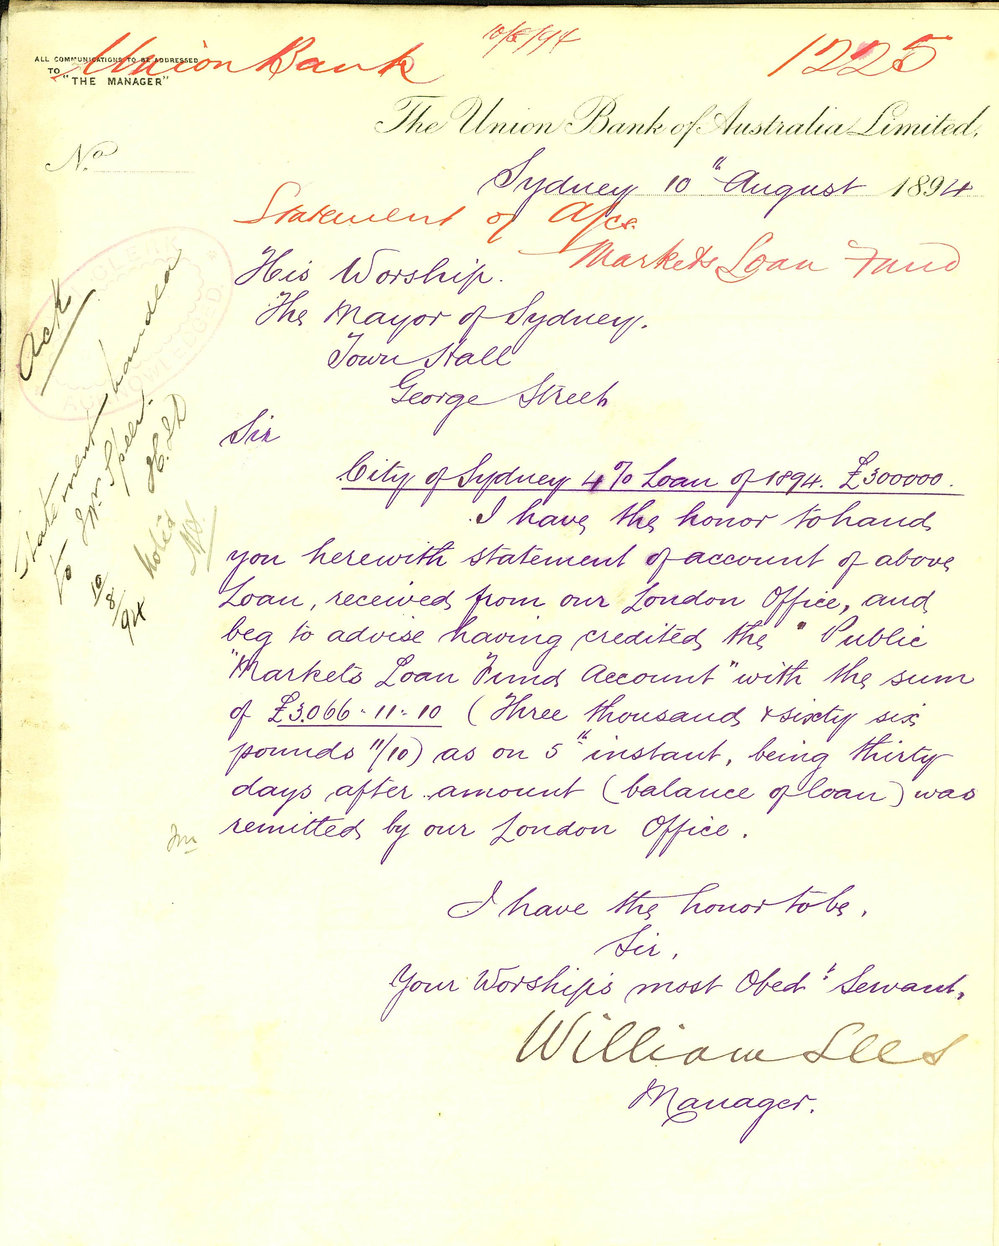 Union Bank
10/8/94
1225
ALL COMMUNICATIONS TO BE ADDRESSED
TO
"THE MANAGER"
The Union Bank of Australia Limited,
No.
Sydney 10th August 1894
Statement of A/cs.
Markets Loan Fund
His Worship.
The Mayor of Sydney.
Town Hall
George Street
Sir
City of Sydney 4% Loan of 1894. £300000.
I have the honor to hand
you herewith statement of account of above
Loan, received from our London Office, and
beg to advise having credited the "Public
"Markets Loan Fund Account" with the sum
of £3.066-11-10 (Three thousand & sixty six
pounds 11/10) as on 5th instant, being thirty
days after amount (balance of loan) was
remitted by our London Office.
I have the honor to be,
Sir,
Your Worship's most Obedt Servant,
William Lees
Manager.
Ack
Statement handed
to Mr Speer.
10/8/94
Noted
ACKNOWLEDGED.